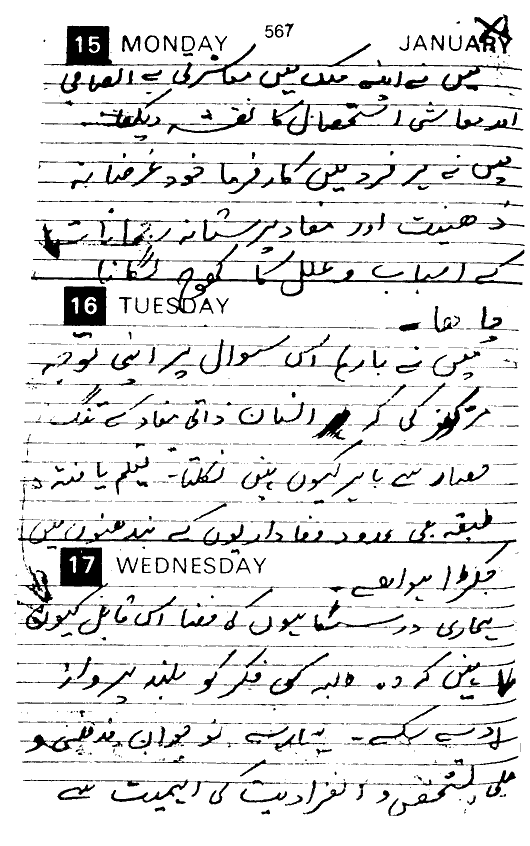 567
15 MONDAY JANUARY
میں نے اپنے ملک میں معاشرتی بے انصافی
اور معاشی استحصال کا نقشہ دیکھا۔
میں نے ہر فرد میں کارفرما خود غرضانہ
ذہنیت اور مفاد پرستانہ رجحانات
کے اسباب و علل کا کھوج لگانا
16 TUESDAY
چاہا۔
میں نے بارہا اس سوال پر اپنی توجہ
مرکوز کی کہ انسان ذاتی مفاد کے تنگ
حصار سے باہر کیوں نہیں نکلتا۔ تعلیم یافتہ
طبقہ بھی محدود وفاداریوں کے بندھنوں میں
17 WEDNESDAY
جکڑا ہوا ہے۔
ہماری درسگاہوں کی فضا اس قابل کیوں
نہیں کہ وہ طلبہ کی فکر کو بلند پرواز
دے سکے۔ ہمارے نوجوان مذہبی و
ملی تشخص و انفرادیت کی اہمیت سے